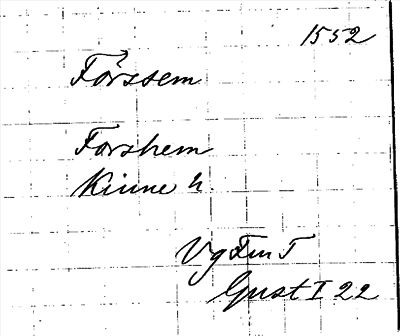 1552
Förssem
Forshem
Kinne h.
Vg Fm T
Gust I 22